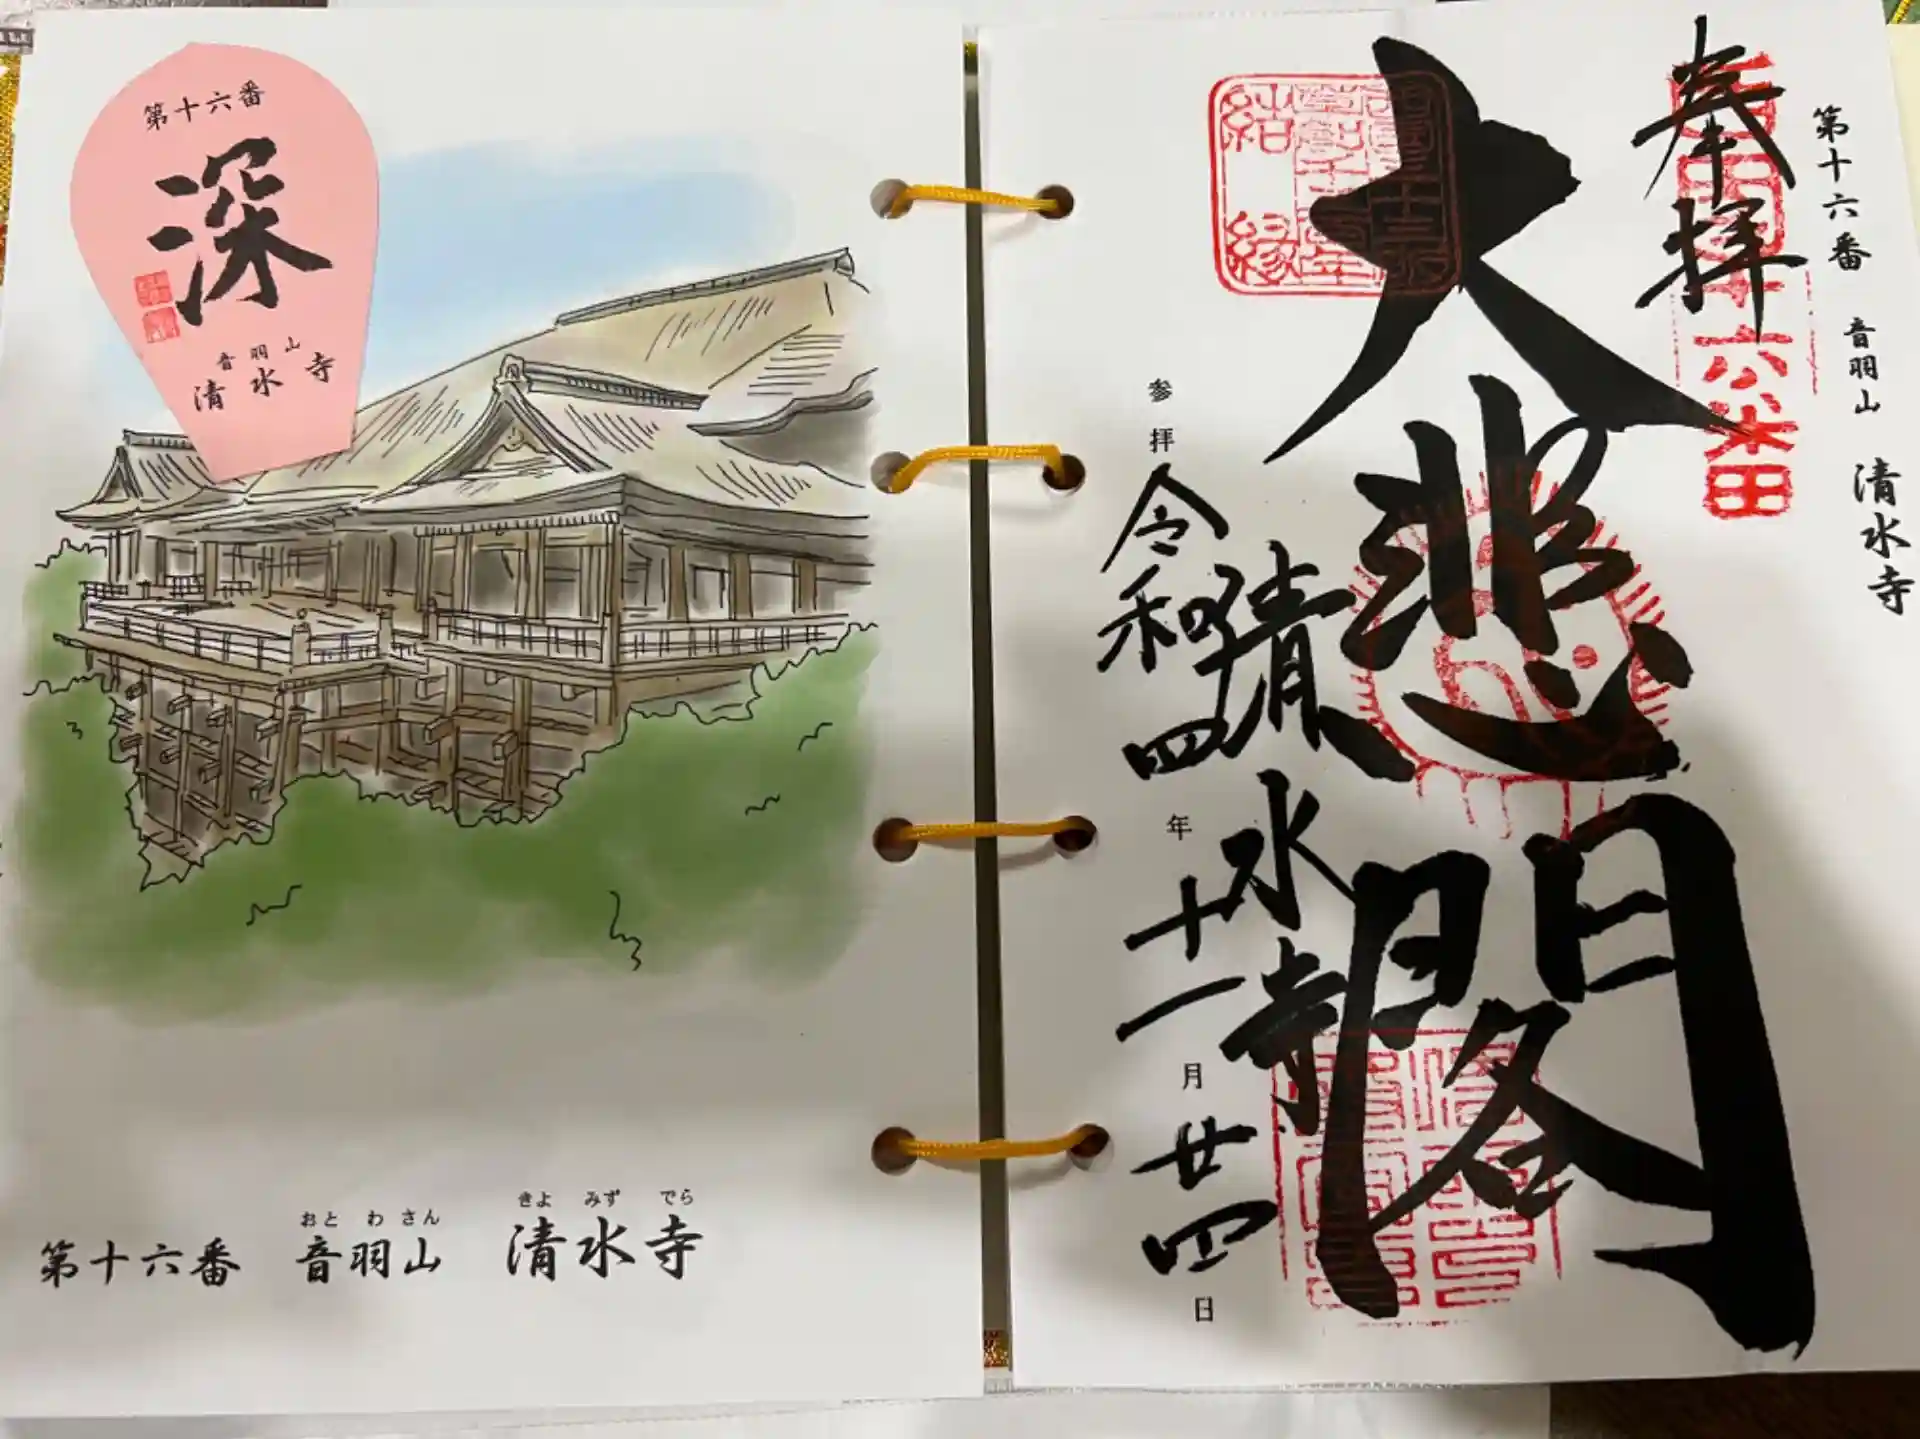 第十六番
深
音羽山
清水寺
おとわさん
きよみずでら
第十六番 音羽山 清水寺
第十六番 音羽山 清水寺
奉拝
大悲閣
結縁
清水寺
参拝 令和四年十一月廿四日